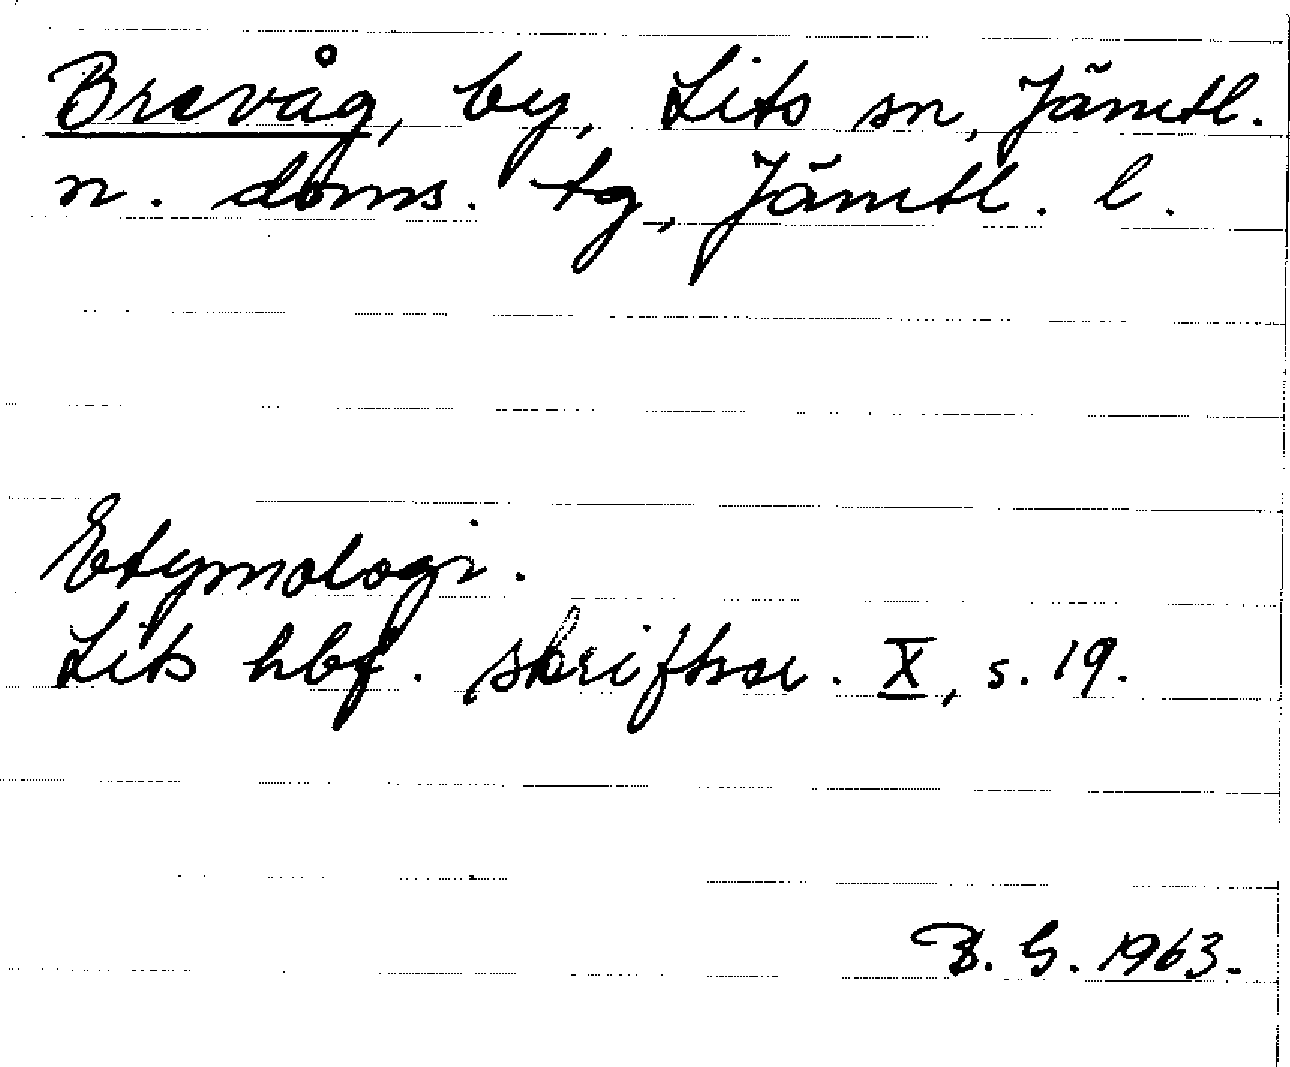 Brevåg, by, Lits sn, Jämtl.
n. doms. tg, Jämtl. l.
Etymologi.
Lits hbf. skriftser. X, s. 19.
B. G. 1963.